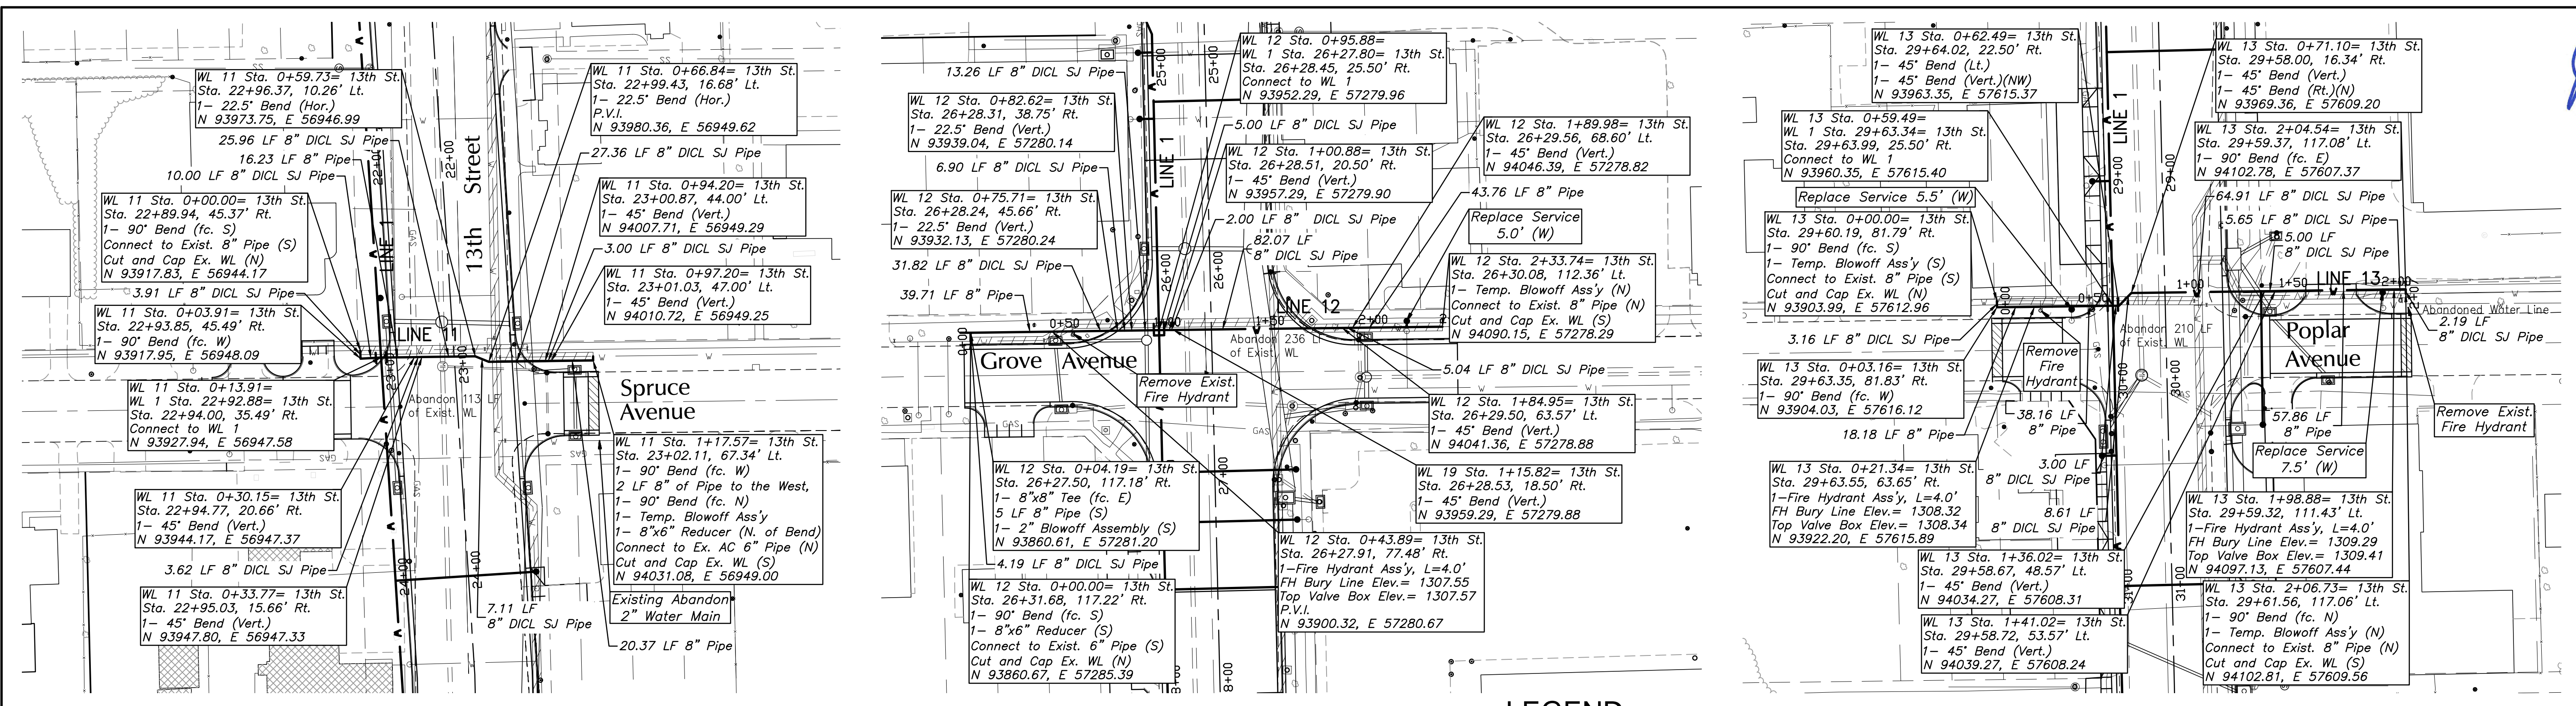 WL 11 Sta. 0+59.73= 13th St.
Sta. 22+96.37, 10.26' Lt.
1- 22.5° Bend (Hor.)
N 93973.75, E 56946.99
25.96 LF 8" DICL SJ Pipe
16.23 LF 8" Pipe
10.00 LF 8" DICL SJ Pipe
WL 11 Sta. 0+00.00= 13th St.
Sta. 22+89.94, 45.37' Rt.
1- 90° Bend (fc. S)
Connect to Exist. 8" Pipe (S)
Cut and Cap Ex. WL (N)
N 93917.83, E 56944.17
3.91 LF 8" DICL SJ Pipe
WL 11 Sta. 0+03.91= 13th St.
Sta. 22+93.85, 45.49' Rt.
1- 90° Bend (fc. W)
N 93917.95, E 56948.09
WL 11 Sta. 0+13.91=
WL 1 Sta. 22+92.88= 13th St.
Sta. 22+94.00, 35.49' Rt.
Connect to WL 1
N 93927.94, E 56947.58
WL 11 Sta. 0+30.15= 13th St.
Sta. 22+94.77, 20.66' Rt.
1- 45° Bend (Vert.)
N 93944.17, E 56947.37
3.62 LF 8" DICL SJ Pipe
WL 11 Sta. 0+33.77= 13th St.
Sta. 22+95.03, 15.66' Rt.
1- 45° Bend (Vert.)
N 93947.80, E 56947.33
22+00
22+00
LINE 1
13th Street
LINE 11
23+00
23+00
Abandon 113 LF
of Exist. WL
24+00
24+00
GAS
WL 11 Sta. 0+66.84= 13th St.
Sta. 22+99.43, 16.68' Lt.
1- 22.5° Bend (Hor.)
P.V.I.
N 93980.36, E 56949.62
27.36 LF 8" DICL SJ Pipe
WL 11 Sta. 0+94.20= 13th St.
Sta. 23+00.87, 44.00' Lt.
1- 45° Bend (Vert.)
N 94007.71, E 56949.29
3.00 LF 8" DICL SJ Pipe
WL 11 Sta. 0+97.20= 13th St.
Sta. 23+01.03, 47.00' Lt.
1- 45° Bend (Vert.)
N 94010.72, E 56949.25
Spruce
Avenue
WL 11 Sta. 1+17.57= 13th St.
Sta. 23+02.11, 67.34' Lt.
1- 90° Bend (fc. W)
2 LF 8" of Pipe to the West,
1- 90° Bend (fc. N)
1- Temp. Blowoff Ass'y
1- 8"x6" Reducer (N. of Bend)
Connect to Ex. AC 6" Pipe (N)
Cut and Cap Ex. WL (S)
N 94031.08, E 56949.00
Existing Abandon
2" Water Main
7.11 LF
8" DICL SJ Pipe
20.37 LF 8" Pipe
13.26 LF 8" DICL SJ Pipe
WL 12 Sta. 0+82.62= 13th St.
Sta. 26+28.31, 38.75' Rt.
1- 22.5° Bend (Vert.)
N 93939.04, E 57280.14
6.90 LF 8" DICL SJ Pipe
WL 12 Sta. 0+75.71= 13th St.
Sta. 26+28.24, 45.66' Rt.
1- 22.5° Bend (Vert.)
N 93932.13, E 57280.24
31.82 LF 8" DICL SJ Pipe
39.71 LF 8" Pipe
25+00
25+00
LINE 1
26+00
26+00
WL 12 Sta. 0+95.88=
WL 1 Sta. 26+27.80= 13th St.
Sta. 26+28.45, 25.50' Rt.
Connect to WL 1
N 93952.29, E 57279.96
5.00 LF 8" DICL SJ Pipe
WL 12 Sta. 1+00.88= 13th St.
Sta. 26+28.51, 20.50' Rt.
1- 45° Bend (Vert.)
N 93957.29, E 57279.90
2.00 LF 8" DICL SJ Pipe
82.07 LF
8" DICL SJ Pipe
WL 12 Sta. 1+89.98= 13th St.
Sta. 26+29.56, 68.60' Lt.
1- 45° Bend (Vert.)
N 94046.39, E 57278.82
43.76 LF 8" Pipe
Replace Service
5.0' (W)
WL 12 Sta. 2+33.74= 13th St.
Sta. 26+30.08, 112.36' Lt.
1- Temp. Blowoff Ass'y (N)
Connect to Exist. 8" Pipe (N)
Cut and Cap Ex. WL (S)
N 94090.15, E 57278.29
LINE 12
0+00
0+50
1+00
1+50
2+00
Abandon 236 LF
of Exist. WL
Grove Avenue
Remove Exist.
Fire Hydrant
5.04 LF 8" DICL SJ Pipe
WL 12 Sta. 1+84.95= 13th St.
Sta. 26+29.50, 63.57' Lt.
1- 45° Bend (Vert.)
N 94041.36, E 57278.88
WL 19 Sta. 1+15.82= 13th St.
Sta. 26+28.53, 18.50' Rt.
1- 45° Bend (Vert.)
N 93959.29, E 57279.88
WL 12 Sta. 0+04.19= 13th St.
Sta. 26+27.50, 117.18' Rt.
1- 8"x8" Tee (fc. E)
5 LF 8" Pipe (S)
1- 2" Blowoff Assembly (S)
N 93860.61, E 57281.20
4.19 LF 8" DICL SJ Pipe
WL 12 Sta. 0+00.00= 13th St.
Sta. 26+31.68, 117.22' Rt.
1- 90° Bend (fc. S)
1- 8"x6" Reducer (S)
Connect to Exist. 6" Pipe (S)
Cut and Cap Ex. WL (N)
N 93860.67, E 57285.39
WL 12 Sta. 0+43.89= 13th St.
Sta. 26+27.91, 77.48' Rt.
1-Fire Hydrant Ass'y, L=4.0'
FH Bury Line Elev.= 1307.55
Top Valve Box Elev.= 1307.57
P.V.I.
N 93900.32, E 57280.67
27+00
GAS
GAS
8+00
LEGEND
WL 13 Sta. 0+62.49= 13th St.
Sta. 29+64.02, 22.50' Rt.
1- 45° Bend (Lt.)
1- 45° Bend (Vert.)(NW)
N 93963.35, E 57615.37
WL 13 Sta. 0+59.49=
WL 1 Sta. 29+63.34= 13th St.
Sta. 29+63.99, 25.50' Rt.
Connect to WL 1
N 93960.35, E 57615.40
Replace Service 5.5' (W)
WL 13 Sta. 0+00.00= 13th St.
Sta. 29+60.19, 81.79' Rt.
1- 90° Bend (fc. S)
1- Temp. Blowoff Ass'y (S)
Connect to Exist. 8" Pipe (S)
Cut and Cap Ex. WL (N)
N 93903.99, E 57612.96
3.16 LF 8" DICL SJ Pipe
WL 13 Sta. 0+03.16= 13th St.
Sta. 29+63.35, 81.83' Rt.
1- 90° Bend (fc. W)
N 93904.03, E 57616.12
18.18 LF 8" Pipe
WL 13 Sta. 0+21.34= 13th St.
Sta. 29+63.55, 63.65' Rt.
1-Fire Hydrant Ass'y, L=4.0'
FH Bury Line Elev.= 1308.32
Top Valve Box Elev.= 1308.34
N 93922.20, E 57615.89
Remove
Fire
Hydrant
38.16 LF
8" Pipe
3.00 LF
8" DICL SJ Pipe
8.61 LF
8" DICL SJ Pipe
WL 13 Sta. 1+36.02= 13th St.
Sta. 29+58.67, 48.57' Lt.
1- 45° Bend (Vert.)
N 94034.27, E 57608.31
WL 13 Sta. 1+41.02= 13th St.
Sta. 29+58.72, 53.57' Lt.
1- 45° Bend (Vert.)
N 94039.27, E 57608.24
LINE 1
29+00
29+00
0+00
0+50
1+00
1+50
LINE 13
2+00
Abandon 210 LF
of Exist. WL
30+00
30+00
31+00
31+00
WL 13 Sta. 0+71.10= 13th St.
Sta. 29+58.00, 16.34' Rt.
1- 45° Bend (Vert.)
1- 45° Bend (Rt.)(N)
N 93969.36, E 57609.20
WL 13 Sta. 2+04.54= 13th St.
Sta. 29+59.37, 117.08' Lt.
1- 90° Bend (fc. E)
N 94102.78, E 57607.37
64.91 LF 8" Pipe
5.65 LF 8" DICL SJ Pipe
5.00 LF
8" DICL SJ Pipe
Abandoned Water Line
2.19 LF
8" DICL SJ Pipe
Poplar
Avenue
57.86 LF
8" Pipe
Replace Service
7.5' (W)
Remove Exist.
Fire Hydrant
WL 13 Sta. 1+98.88= 13th St.
Sta. 29+59.32, 111.43' Lt.
1-Fire Hydrant Ass'y, L=4.0'
FH Bury Line Elev.= 1309.29
Top Valve Box Elev.= 1309.41
N 94097.13, E 57607.44
WL 13 Sta. 2+06.73= 13th St.
Sta. 29+61.56, 117.06' Lt.
1- 90° Bend (fc. N)
1- Temp. Blowoff Ass'y (N)
Connect to Exist. 8" Pipe (N)
Cut and Cap Ex. WL (S)
N 94102.81, E 57609.56